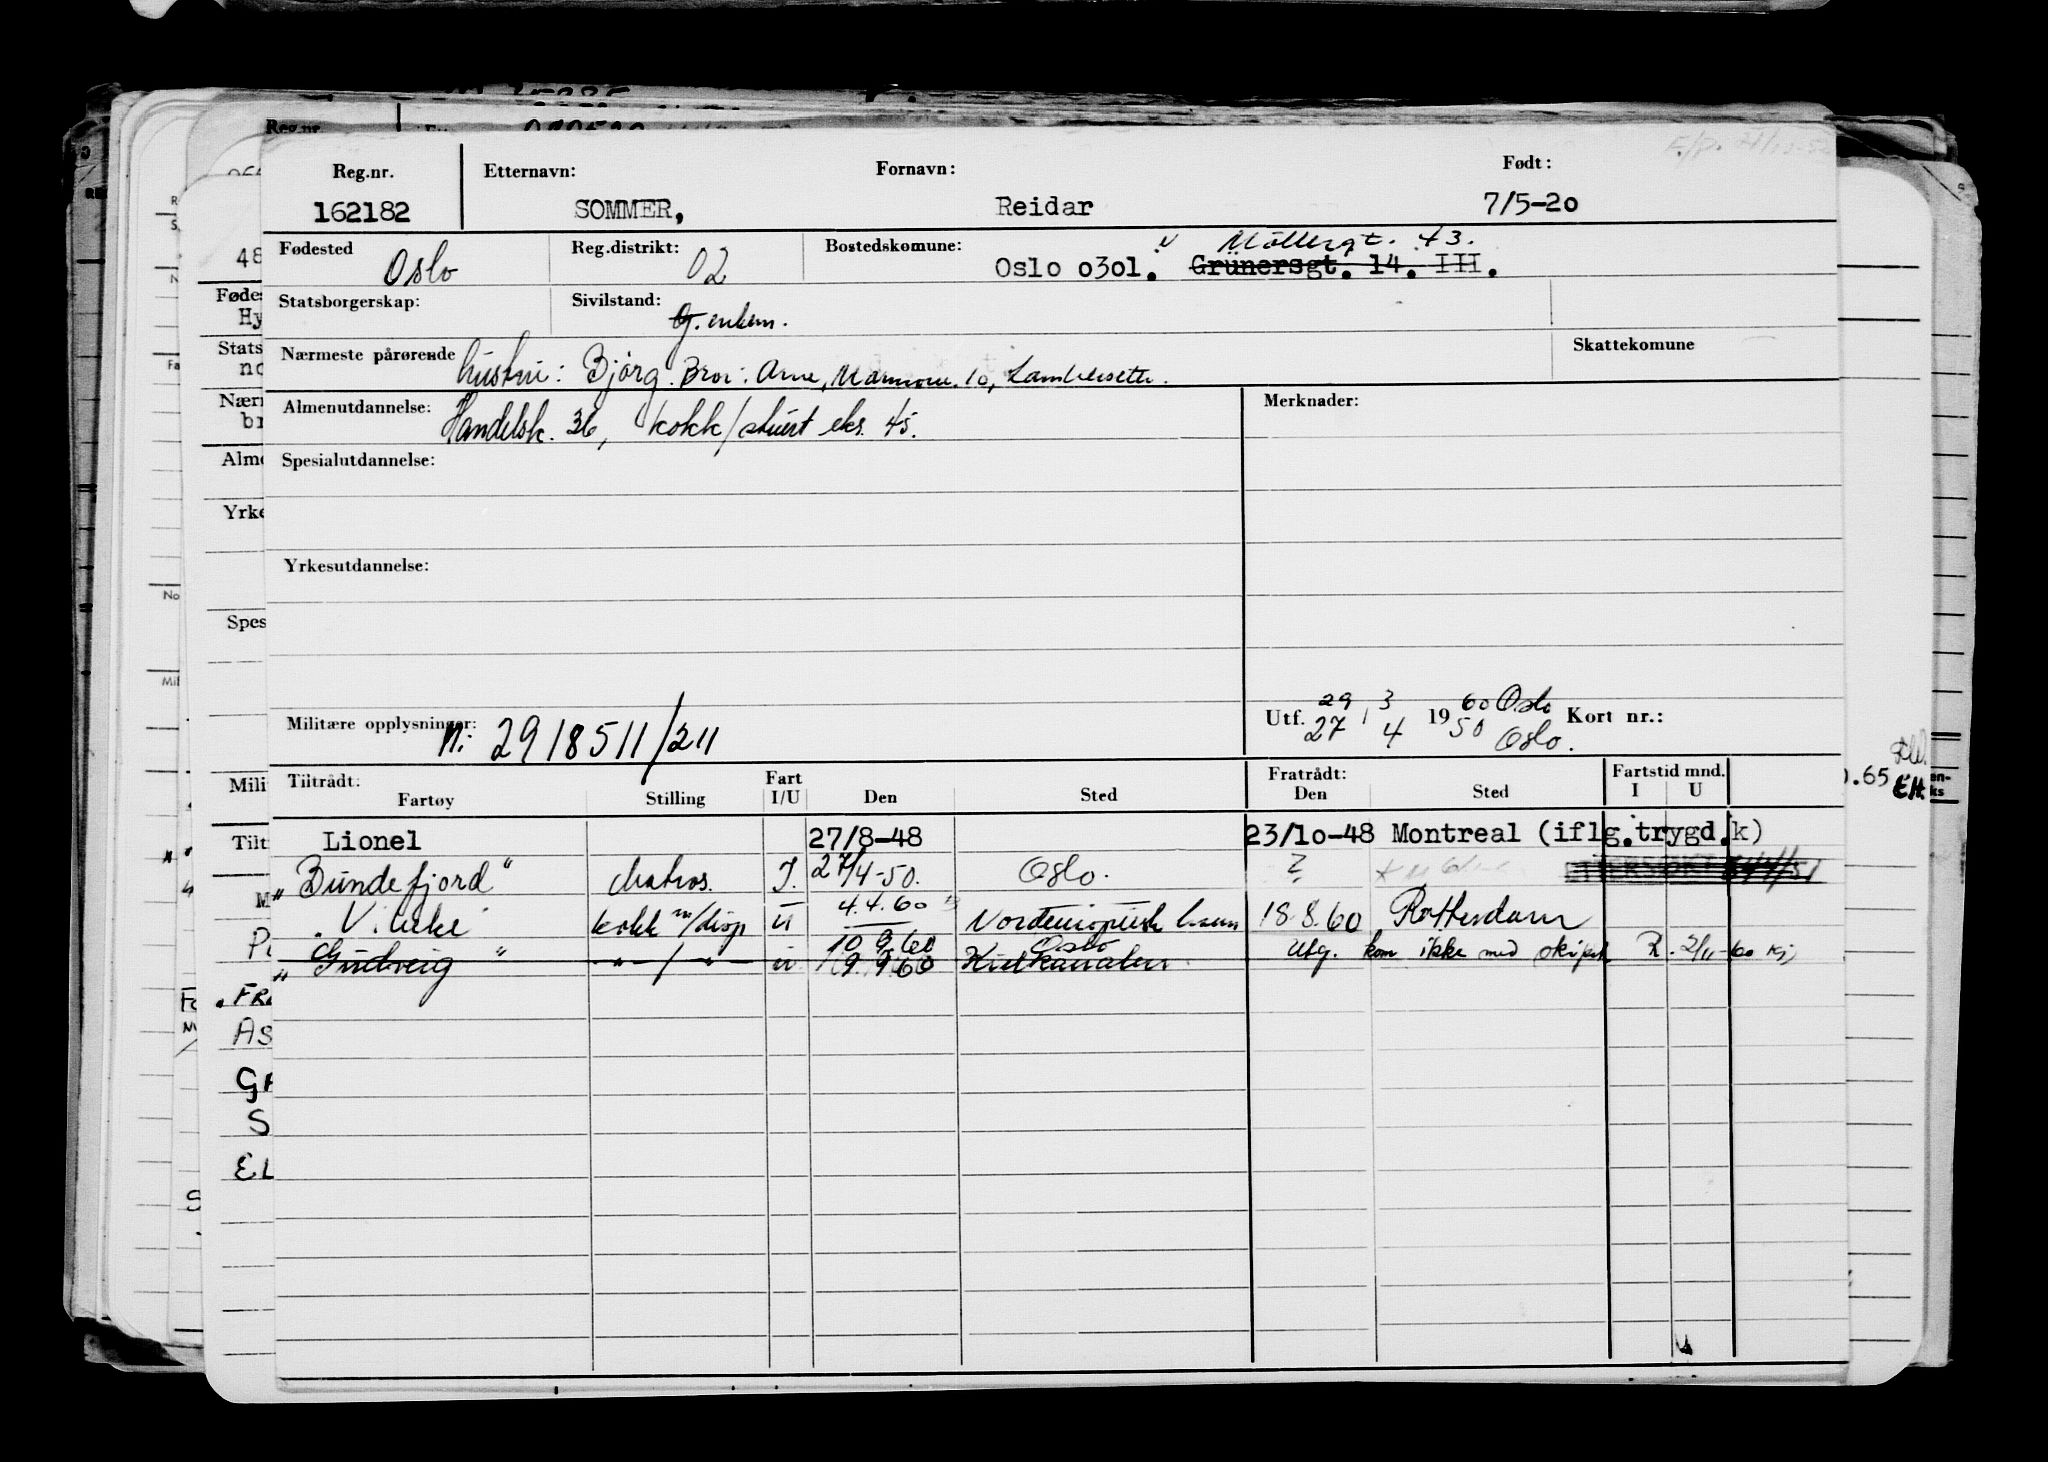 Reg.nr. Etternavn: Fornavn: Født:
162182 SOMMER, Reidar 7/5-20
Fødested Oslo Reg.distrikt: 02 Bostedskomune: Oslo 0301. Grünersgt. 14. III. Möllergt. 43.
Statsborgerskap: Sivilstand: G. enkem.
Nærmeste pårørende hustru: Bjørg. Bror: Arne, 10, Lambertseter. Skattekomune
Almenutdannelse: Handelsk. 36, kokk/stuert eks. 45. Merknader:
Spesialutdannelse:
Yrkesutdannelse:
Militære opplysninger: N: 2918511/211
Utf. 29 / 3 1960 Oslo Kort nr.:
27 4 50 Oslo.
Tiltrådt: Fart Fratrådt: Fartstid mnd.
Fartøy Stilling I/U Den Sted Den Sted I U
Lionel 27/8-48 23/10-48 Montreal (iflg.trygd.k)
"Bundefjord" Matros. I. 27/4-50. Oslo. ?
kokk m/disp U 4.4.60 18.8.60 Rotterdam
10 9 60 Oslo
"Gudveig" -"-/-"- U 9 9 60 Kielkanalen Utg. kom ikke med R. 2/11-60
Reg.nr.
48
Fødes
Hy
Stats
no
Nærn
br
Alme
Yrke
Spes
Mili
Tilt
"FRA
AS
GA
S
EL
.65
EH.